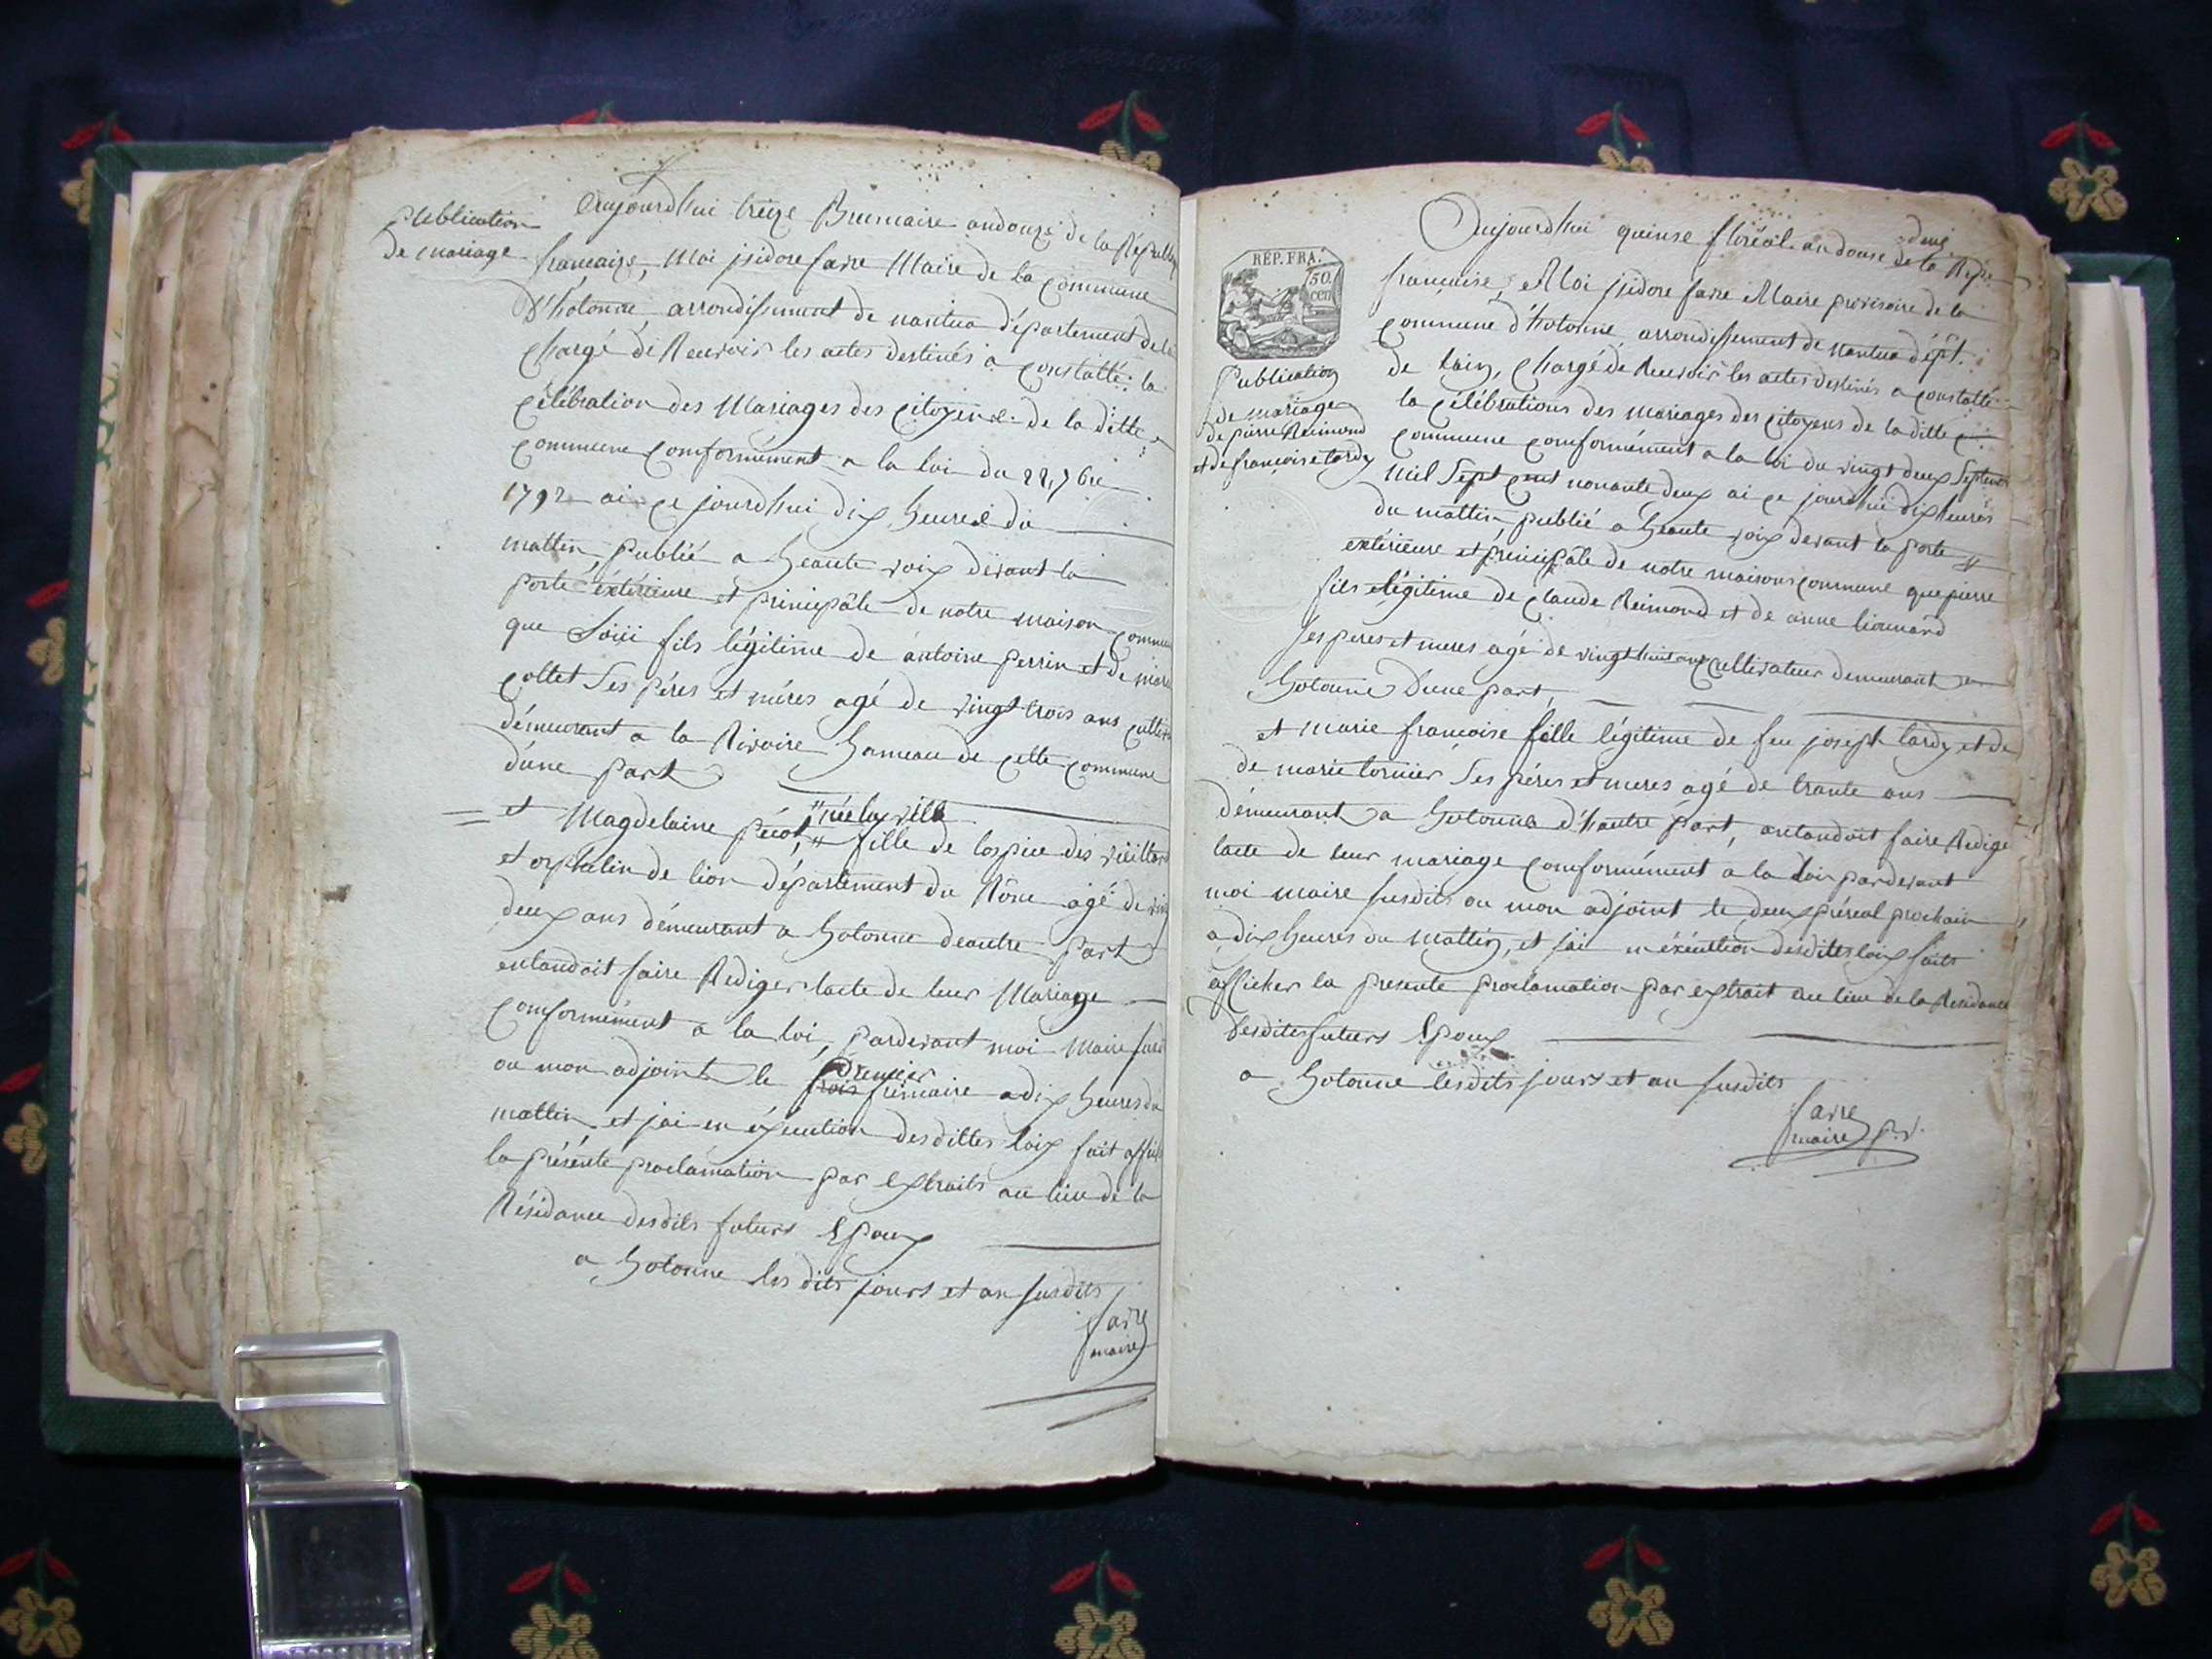 Publication
de mariage
Aujourdhui treize Brumaire an douze de la Répub
francaise, Moi jsidore favre Maire de la commune
d'hotonne arrondissement de nantua département de
chargé de Recevoir les actes destinés a constatté la
célébration des Mariages des citoyens de la ditte
commune comformément a la loi du 22, 7bre
1792 ai ce jourdhui dix heures du
mattin publié a heaute voix devant la
porte éxtérieure et principâle de notre maison commu
que fils légitime de antoine perrin et de marie
collet Ses péres et méres agé de vingt trois ans cultiv
démeurant a la Rivoire hameau de cette commune
dune part
et Magdelaine pécot, " née la ville " fille de lospice des viellard
et orphelin de lion département du Rône agé de ving
deux ans démeurant a hotonne deautre part
entandoit faire Rediger lacte de leur Mariage
comformément a la loi, pardevant moi Maire susd
ou mon adjoint le trois premier frimaire a dix heures du
mattin et jai en éxécution desdittes loix fait affich
la présente proclamation par extraits au lieu de la
Résidance desdits futurs Epoux
a hotonne les dits jours et an susdits
favre
maire
REP. FRA.
50.
cen
Publication
de mariage
de pierre Reimond
et de francoise tardy
Aujourdhui quinse floréal an douse de la Repu
francaise, Moi jsidore favre Maire provisoire de la
commune d'hotonne arrondissement de nantua dépt.
de lain, chargé de Recevoir les actes destinés a constatté
la célébrations des mariages des citoyens de la ditte
commune comformément a la loi du vingt deux Septem
mil Sept cent nonante deux ai ce jourdhui dix heures
du mattin publié a heaute voix devant la porte
extérieure et principale de notre maison commune que pierre
fils légitime de claude Reimond et de anne lionnard
Ses peres et meres agé de vingt huit ans cultivateur demeurant a
hotonne dune part
et marie francoise fille légitime de feu joseph tardy et de
de marie tornier Ses péres et meres agé de trante ans
démeurant a hotonne d'hautre part, antandoit faire Redige
lacte de leur mariage comformément a la loi pardevant
moi maire susdits ou mon adjoint le deux préreal prochain
a dix heures du mattin, et jai en éxécution desdittes loix faits
afficher la presente proclamation par extrait au lieu de la Residance
desdits futurs Epoux
a hotonne lesdits jours et an susdits
favre
maire p.v.